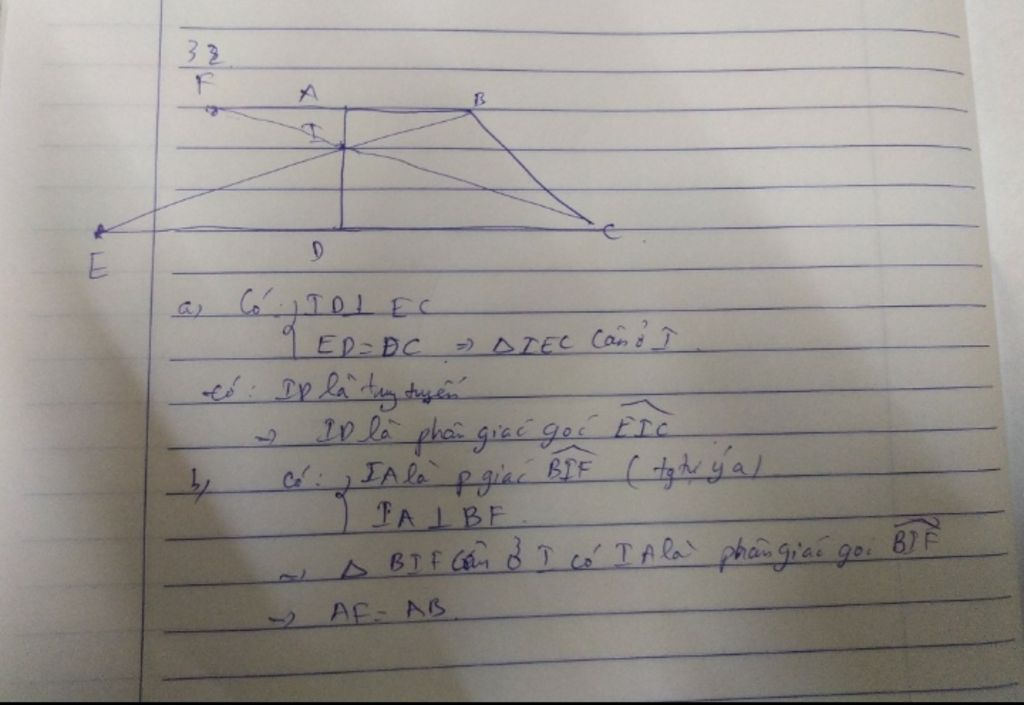 38
F A B
I
E D C
a, Có: ID ⊥ EC
ED = DC ⇒ Δ IEC cân ở I
có: ID là tuyến
→ ID là phân giác goc EIC
b, Có: IA là p giác BIF (tg tự ý a)
IA ⊥ BF
→ Δ BIF cân ở I có IA là phân giác goc BIF
→ AF = AB